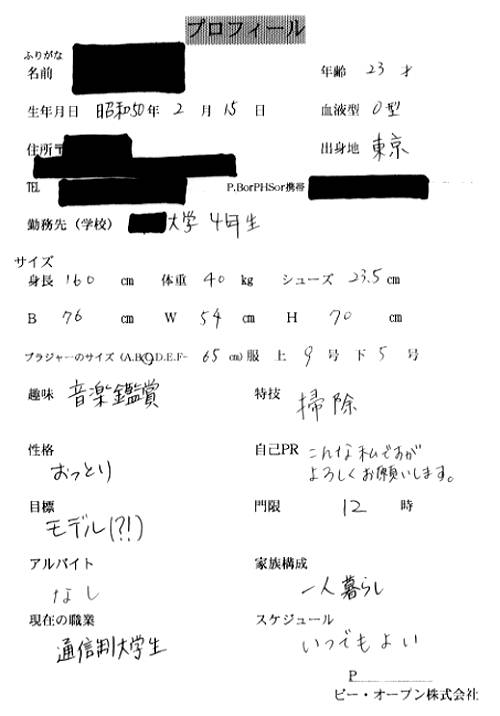 プロフィール
ふりがな
名前 年齢 23 才
生年月日 昭和50年 2 月 15 日 血液型 O型
住所〒 出身地 東京
TEL P.BorPHSor携帯
勤務先（学校） 大学 4年生
サイズ
身長 160 cm 体重 40 kg シューズ 23.5 cm
B 76 cm W 54 cm H 70 cm
ブラジャーのサイズ（A.B.C.D.E.F- 65 cm）服 上 9 号 下 5 号
趣味 音楽鑑賞 特技 掃除
性格 おっとり 自己PR こんな私ですが
よろしくお願いします。
目標 モデル(?!) 門限 12 時
アルバイト なし 家族構成 一人暮らし
現在の職業 通信制大学生 スケジュール いつでもよい
P
ビー・オープン株式会社